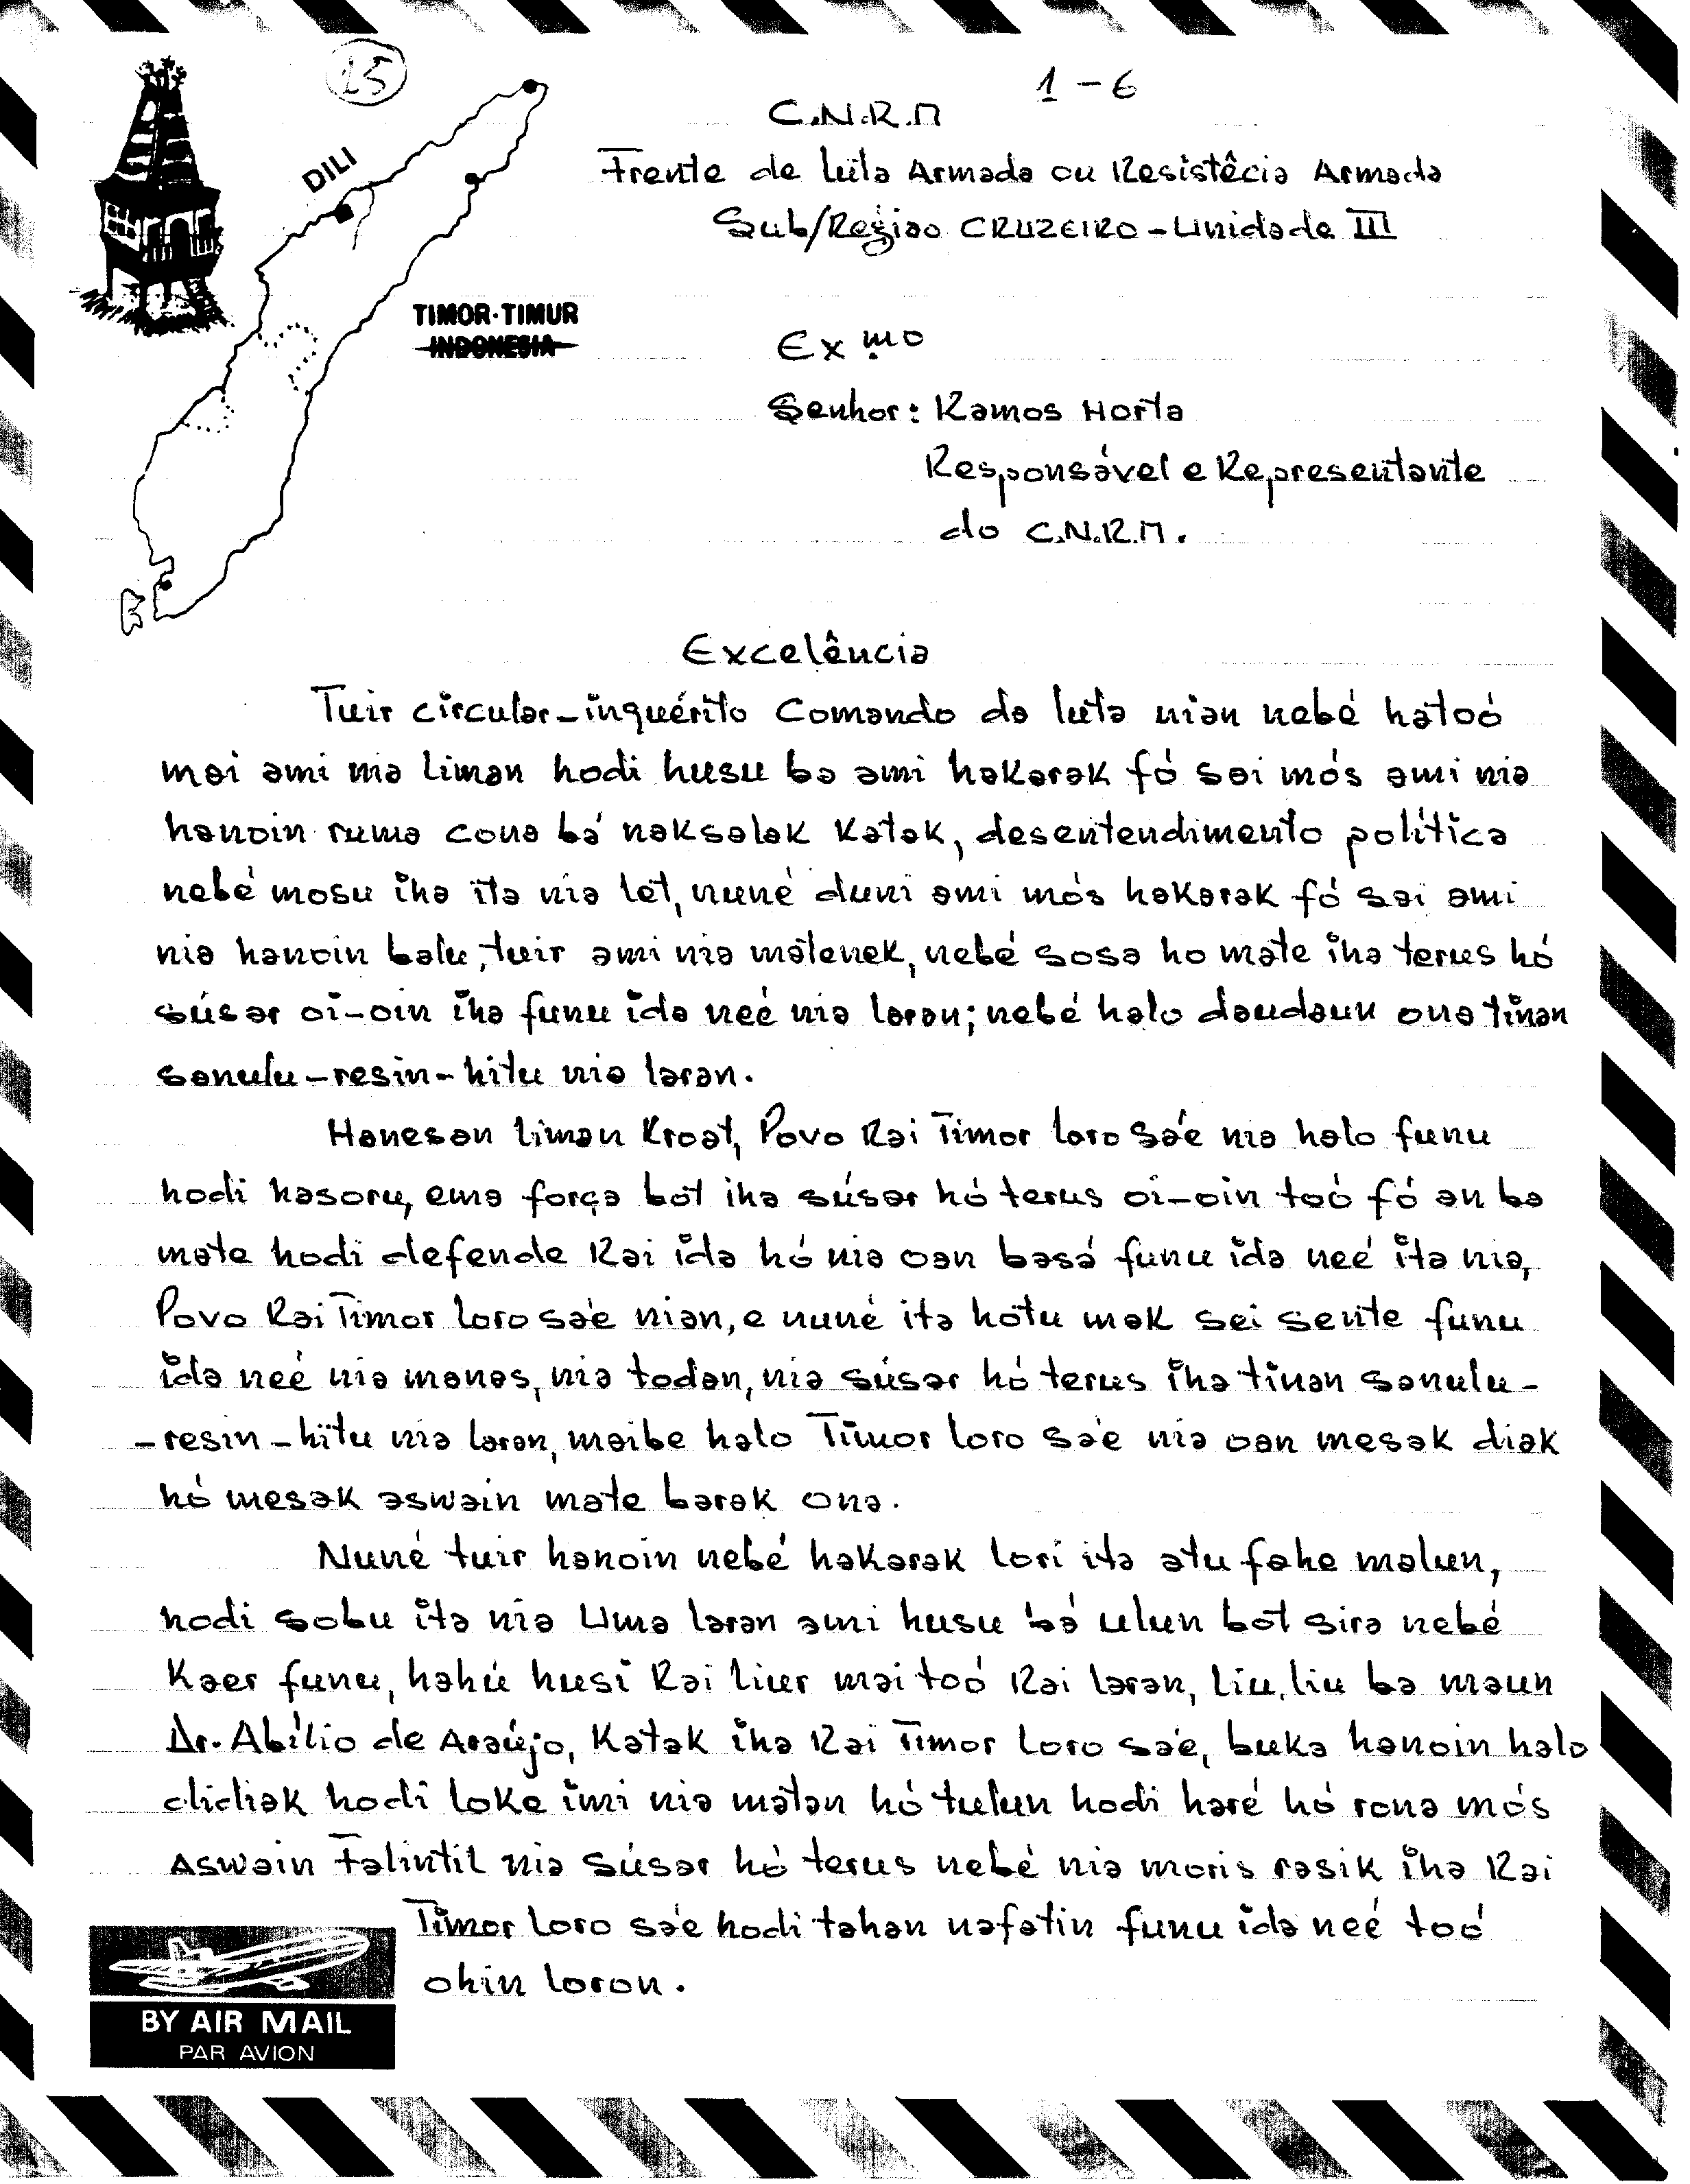 25
1-6
C.N.R.M
Frente de luta Armada ou Resistêcia Armada
Sub/Regiao CRUZEIRO - Unidade III
DILI
TIMOR·TIMUR
INDONESIA
Ex mo
Senhor: Ramos Horta
Responsável e Representante
do C.N.R.M.
Excelência
Tuir circular-inquérito Comando da luta nian nebé hátoó
mai ami ma liman hodi husu ba ami hakarak fó sai mós ami nia
hanoin ruma cona bá naksalak katak, desentendimento política
nebé mosu iha ita nia let, nuné duni ami mós hakarak fó sai ami
nia hanoin balu, tuir ami nia mátenek, nebé sosa ho mate iha terus hó
súsar oi-oin iha funu ida neé nia laran; nebé halo daudaun ona tinan
sanulu-resin-hitu nia laran.
Hanesan liman kroat, Povo Rai Timor loro sáe nia halo funu
hodi hasoru, ema força bót iha súsar hó terus oi-oin toó fó an ba
mate hodi defende Rai ida hó nia oan basá funu ida neé ita nia,
Povo Rai Timor loro sáe nian, e nuné ita hotu mak sei sente funu
ida neé nia manas, nia todan, nia súsar hó terus iha tinan sanulu-
-resin-hitu nia laran, maibe halo Timor loro sáe nia oan mesak diak
hó mesak aswain mate barak ona.
Nuné tuir hanoin nebé hakarak lori ita atu fahe malun,
hodi sobu ita nia Uma laran ami husu bá ulun bót sira nebé
kaer funu, hahú husi Rai liur mai toó Rai laran, liu, liu ba maun
Dr. Abílio de Araújo, katak iha Rai Timor Loro sáe, buka hanoin halo
didiak hodi loke imi nia mátan hó tulun hodi haré hó rona mós
Aswain Falintil nia súsar hó terus nebé nia moris rasik iha Rai
Timor Loro sáe hodi tahan nafatin funu ida neé toó
ohin loron.
BY AIR MAIL
PAR AVION